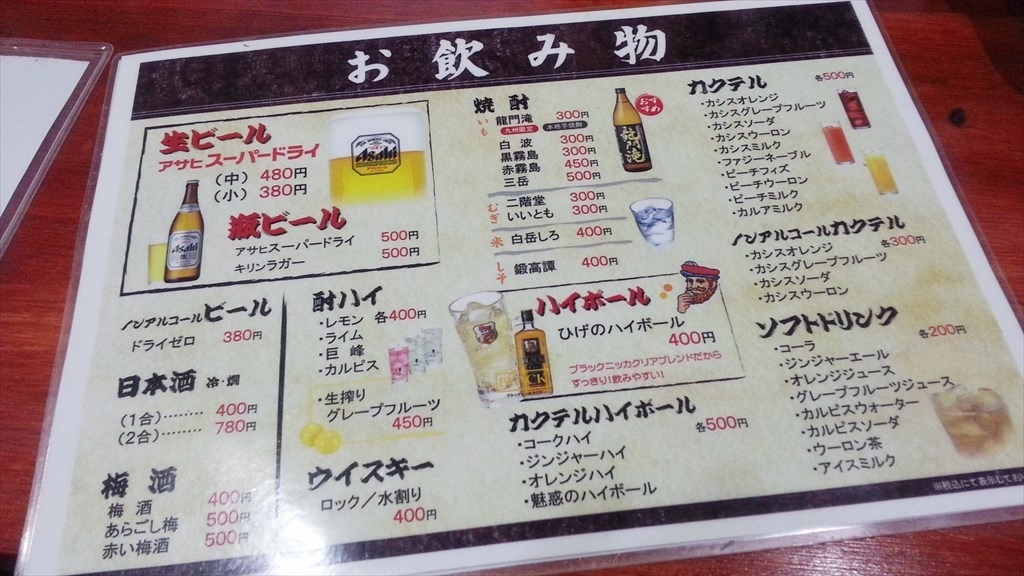 お飲み物
生ビール
アサヒスーパードライ
(中) 480円
(小) 380円
Asahi
瓶ビール
アサヒスーパードライ 500円
キリンラガー 500円
Asahi
ノンアルコールビール
ドライゼロ 380円
日本酒 冷・燗
(1合)……… 400円
(2合)……… 780円
梅酒
梅酒 400円
あらごし梅 500円
赤い梅酒 500円
酎ハイ
・レモン 各400円
・ライム
・巨峰
・カルピス
・生搾り
グレープフルーツ
450円
ウイスキー
ロック/水割り
400円
焼酎
いも
龍門滝 300円
九州限定 本格芋焼酎
白波 300円
黒霧島 300円
赤霧島 450円
三岳 500円
おすすめ
龍門滝
むぎ
二階堂 300円
いいとも 300円
米
白岳しろ 400円
しそ
鍛高譚 400円
ハイボール
ひげのハイボール
400円
ブラックニッカクリアブレンドだから
すっきり!飲みやすい!
カクテルハイボール
各500円
・コークハイ
・ジンジャーハイ
・オレンジハイ
・魅惑のハイボール
カクテル 各500円
・カシスオレンジ
・カシスグレープフルーツ
・カシスソーダ
・カシスウーロン
・カシスミルク
・ファジーネーブル
・ピーチフィズ
・ピーチウーロン
・ピーチミルク
・カルアミルク
ノンアルコールカクテル
各300円
・カシスオレンジ
・カシスグレープフルーツ
・カシスソーダ
・カシスウーロン
ソフトドリンク
各200円
・コーラ
・ジンジャーエール
・オレンジジュース
・グレープフルーツジュース
・カルピスウォーター
・カルピスソーダ
・ウーロン茶
・アイスミルク
※税込にて表示してお